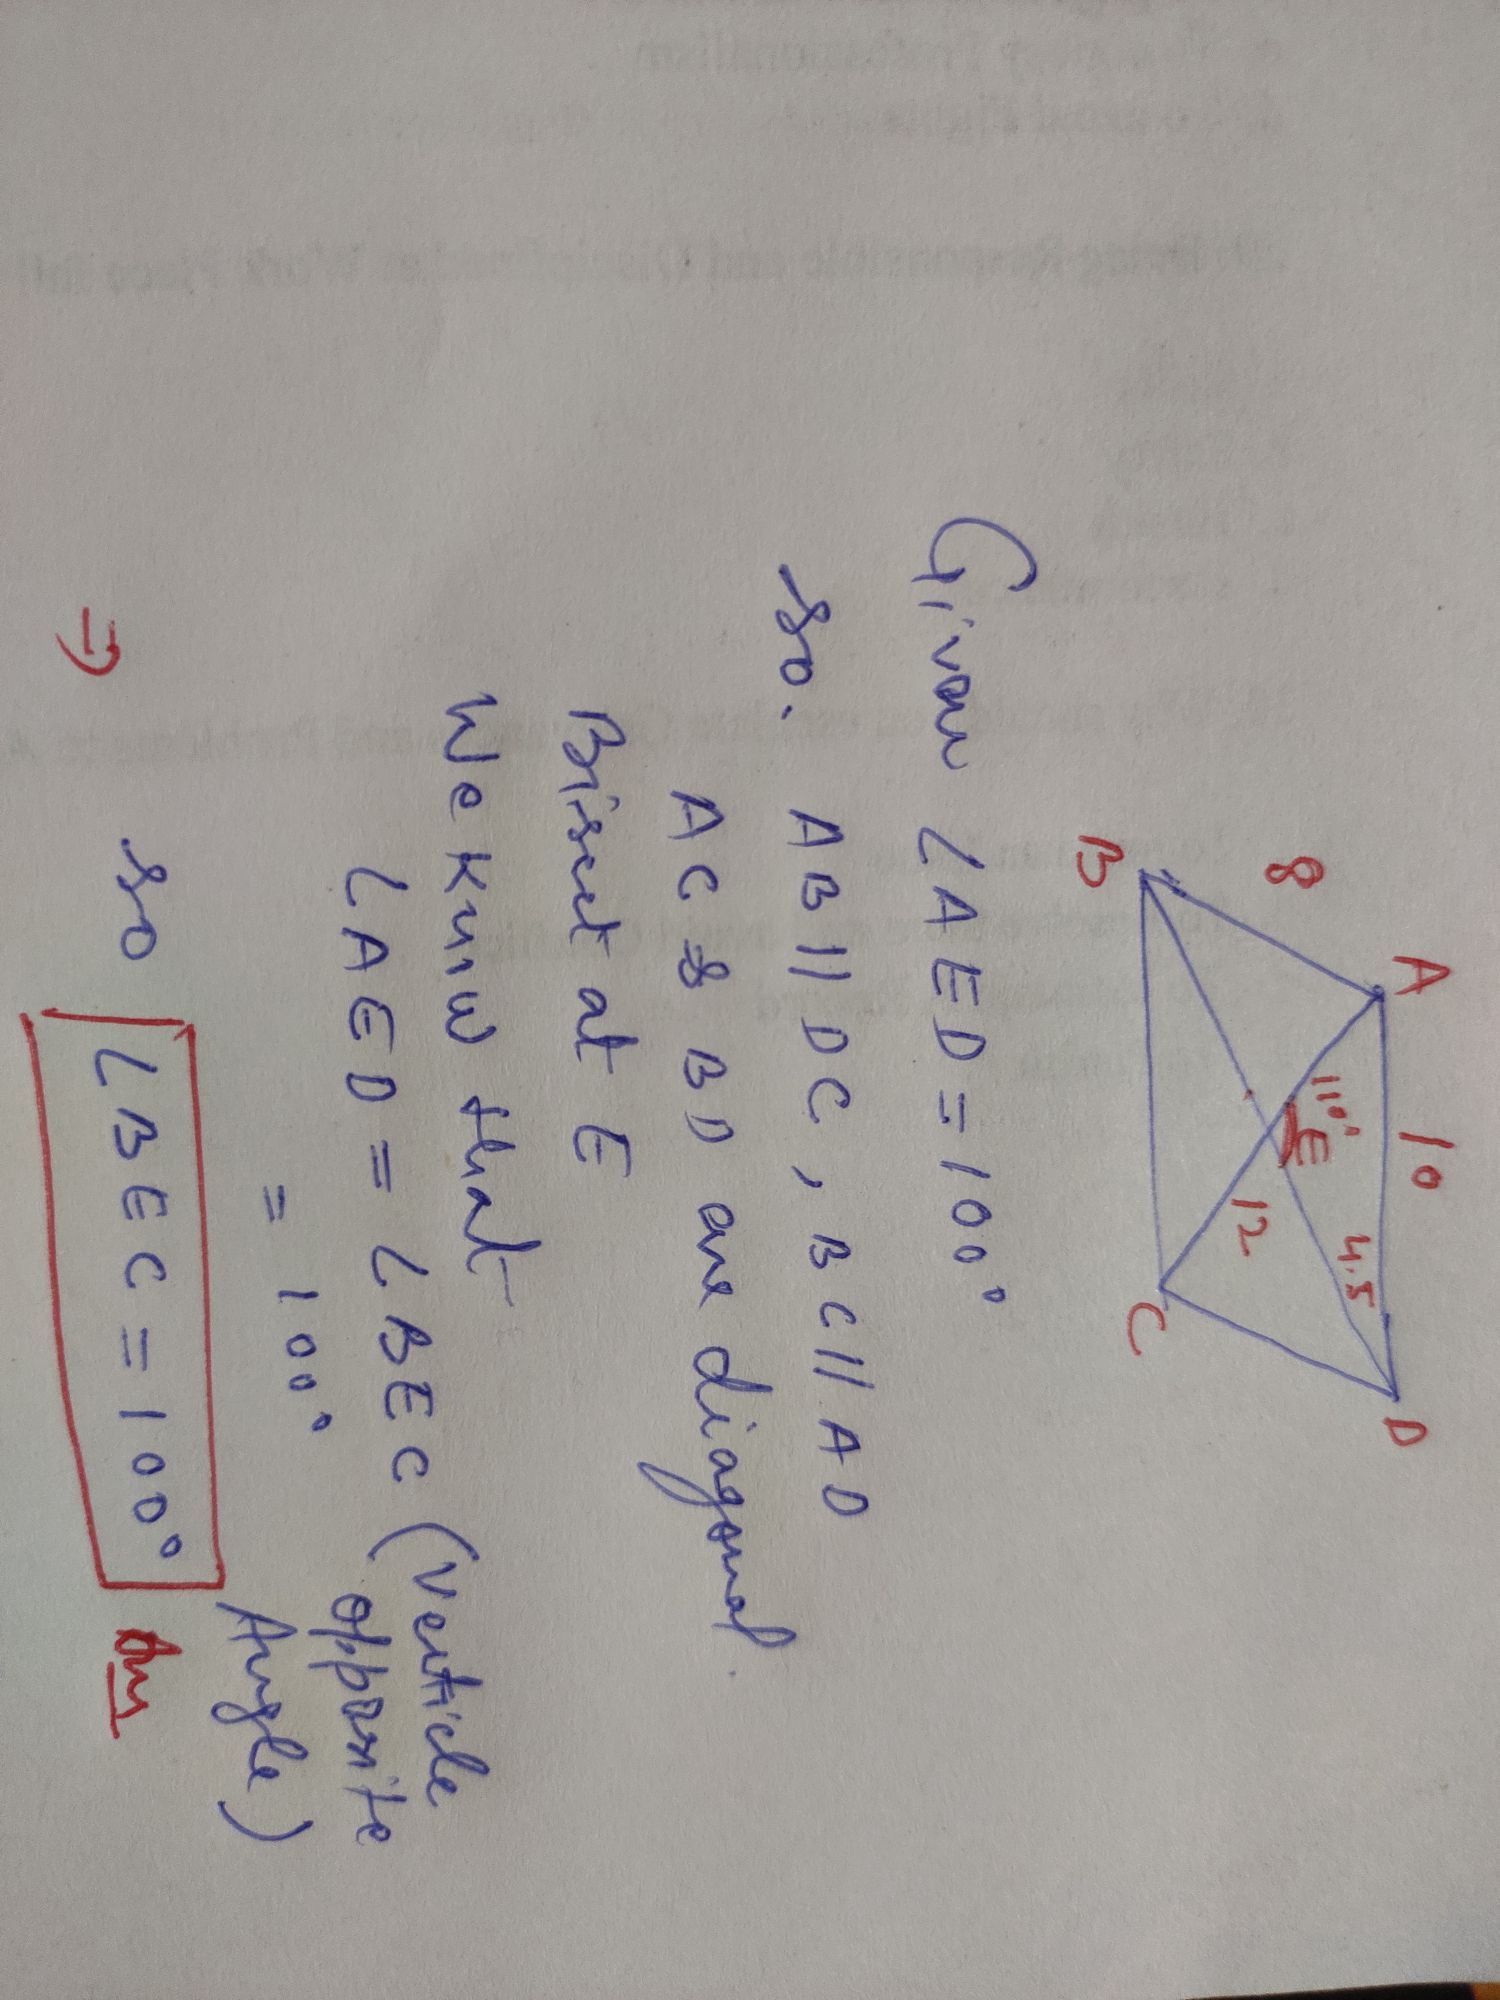 A
10
D
8
110°
4.5
E
12
B
C
Given ∠AED = 100°
so. AB || DC, BC || AD
AC & BD are diagonal.
Bisect at E
We Know that
∠AED = ∠BEC (Verticle
opposite
Angle)
= 100°
⇒ so ∠BEC = 100° Ans